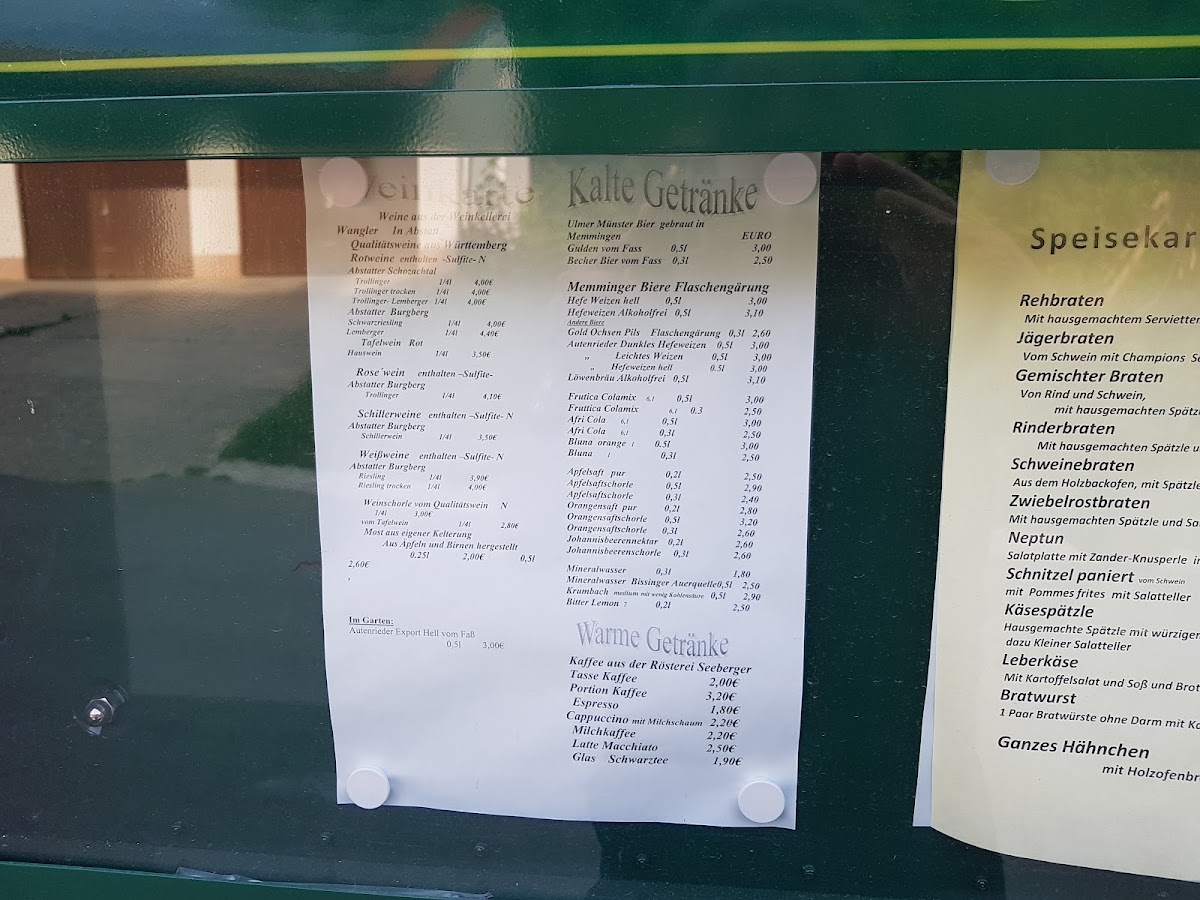 Weinkarte
Weine aus der Weinkellerei
Wangler In Abstatt
Qualitätsweine aus Württemberg
Rotweine enthalten -Sulfite- N
Abstatter Schozachtal
Trollinger 1/4l 4,00€
Trollinger trocken 1/4l 4,00€
Trollinger- Lemberger 1/4l 4,00€
Abstatter Burgberg
Schwarzriesling 1/4l 4,00€
Lemberger 1/4l 4,40€
Tafelwein Rot
Hauswein 1/4l 3,50€
Rose´wein enthalten –Sulfite-
Abstatter Burgberg
Trollinger 1/4l 4,10€
Schillerweine enthalten –Sulfite- N
Abstatter Burgberg
Schillerwein 1/4l 3,50€
Weißweine enthalten –Sulfite- N
Abstatter Burgberg
Riesling 1/4l 3,90€
Riesling trocken 1/4l 4,00€
Weinschorle vom Qualitätswein N
1/4l 3,00€
vom Tafelwein 1/4l 2,80€
Most aus eigener Kelterung
Aus Apfeln und Birnen hergestellt
0.25l 2,00€ 0,5l
2,60€
,
Im Garten:
Autenrieder Export Hell vom Faß
0,5l 3,00€
Kalte Getränke
Ulmer Münster Bier gebraut in
Memmingen EURO
Gulden vom Fass 0,5l 3,00
Becher Bier vom Fass 0,3l 2,50
Memminger Biere Flaschengärung
Hefe Weizen hell 0,5l 3,00
Hefeweizen Alkoholfrei 0,5l 3,10
Andere Biere
Gold Ochsen Pils Flaschengärung 0,3l 2,60
Autenrieder Dunkles Hefeweizen 0,5l 3,00
„ Leichtes Weizen 0,5l 3,00
„ Hefeweizen hell 0.5l 3,00
Löwenbräu Alkoholfrei 0,5l 3,10
Frutica Colamix 6,1 0,5l 3,00
Fruttica Colamix 6,1 0.3 2,50
Afri Cola 6,1 0,5l 3,00
Afri Cola 6,1 0,3l 2,50
Bluna orange 1 0.5l 3,00
Bluna 1 0,3l 2,50
Apfelsaft pur 0,2l 2,50
Apfelsaftschorle 0,5l 2,90
Apfelsaftschorle 0,3l 2,40
Orangensaft pur 0,2l 2,80
Orangensaftschorle 0,5l 3,20
Orangensaftschorle 0,3l 2,60
Johannisbeerennektar 0,2l 2,60
Johannisbeerenschorle 0,3l 2,60
Mineralwasser 0,3l 1,80
Mineralwasser Bissinger Auerquelle0,5l 2,50
Krumbach medium mit wenig Kohlensäure 0,5l 2,90
Bitter Lemon 7 0,2l 2,50
Warme Getränke
Kaffee aus der Rösterei Seeberger
Tasse Kaffee 2,00€
Portion Kaffee 3,20€
Espresso 1,80€
Cappuccino mit Milchschaum 2,20€
Milchkaffee 2,20€
Latte Macchiato 2,50€
Glas Schwarztee 1,90€
Speisekar
Rehbraten
Mit hausgemachtem Servietten
Jägerbraten
Vom Schwein mit Champions Se
Gemischter Braten
Von Rind und Schwein,
mit hausgemachten Spätzle
Rinderbraten
Mit hausgemachten Spätzle u
Schweinebraten
Aus dem Holzbackofen, mit Spätzle
Zwiebelrostbraten
Mit hausgemachten Spätzle und Sa
Neptun
Salatplatte mit Zander-Knusperle in
Schnitzel paniert vom Schwein
mit Pommes frites mit Salatteller
Käsespätzle
Hausgemachte Spätzle mit würzigen
dazu Kleiner Salatteller
Leberkäse
Mit Kartoffelsalat und Soß und Brot
Bratwurst
1 Paar Bratwürste ohne Darm mit Ka
Ganzes Hähnchen
mit Holzofenbr